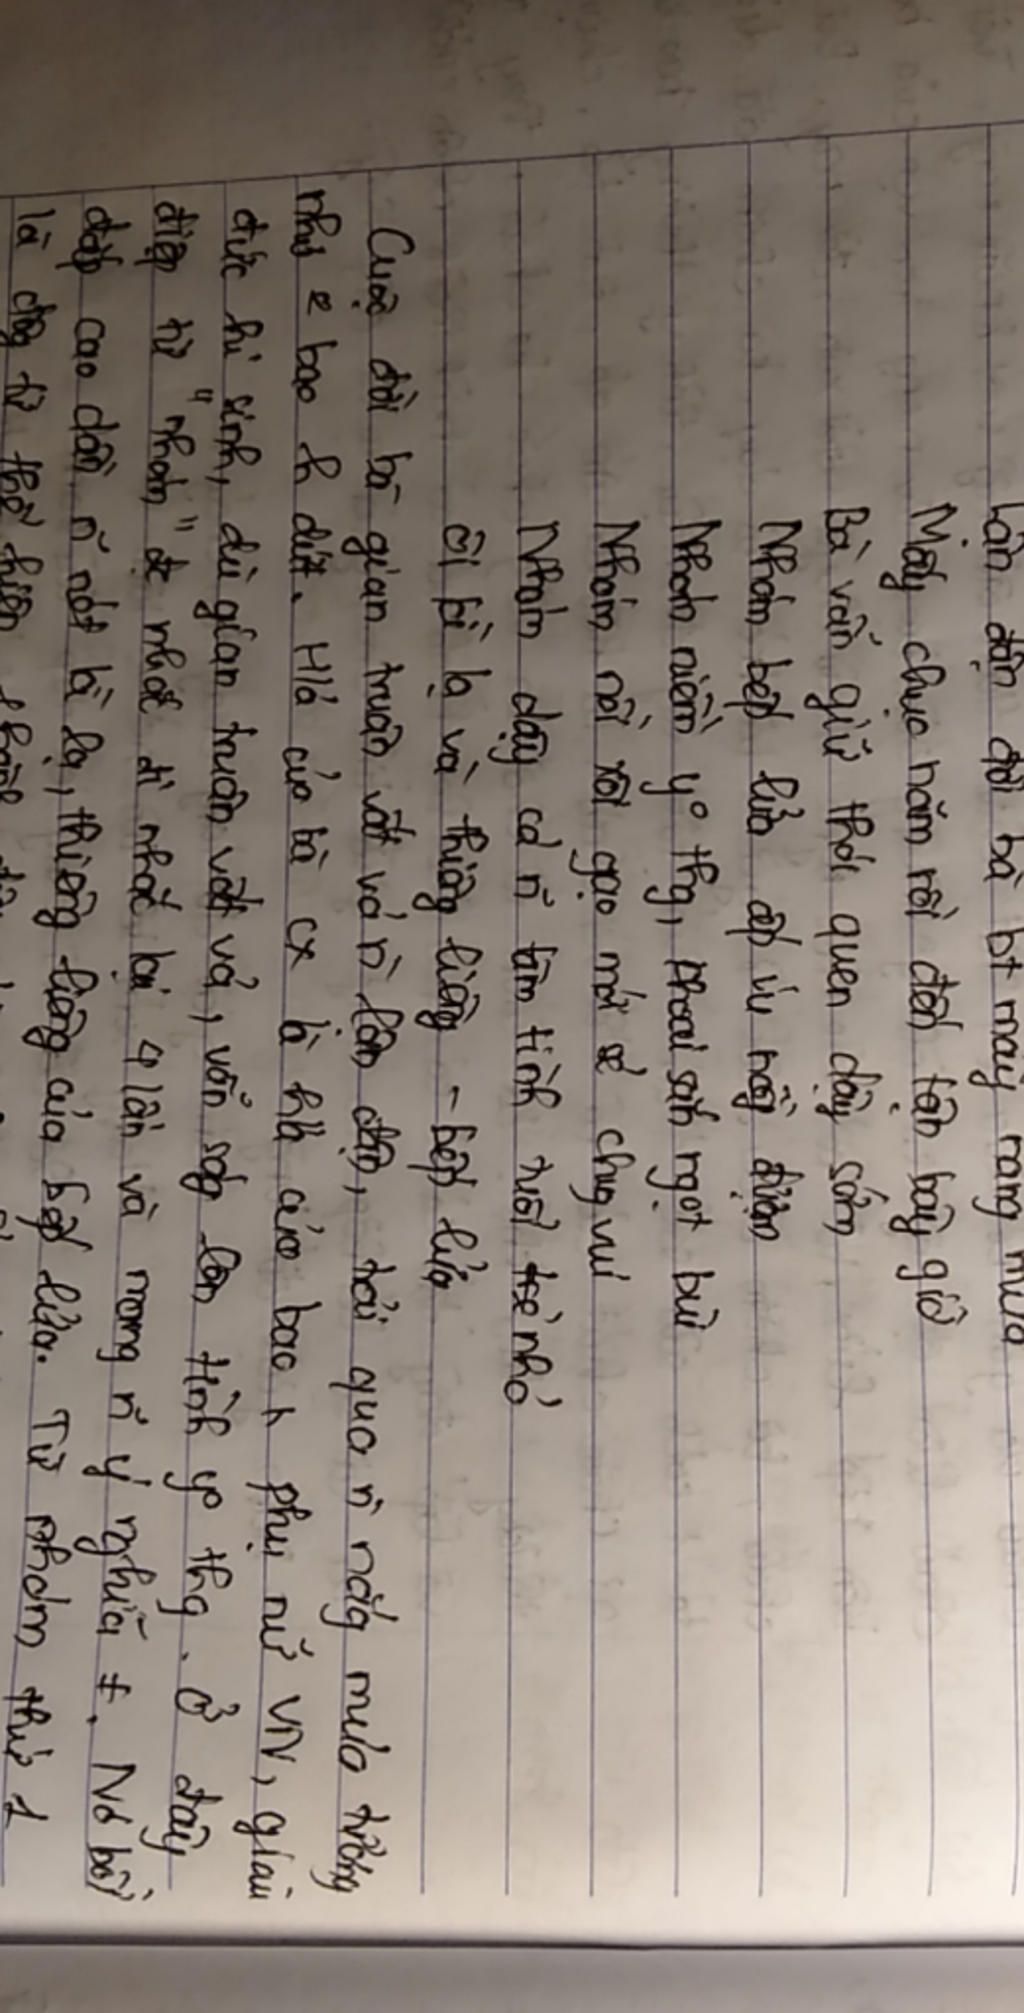 Lận đận đời bà bt mấy nắng mưa
Mấy chục năm rồi đến tận bây giờ
Bà vẫn giữ thói quen dậy sớm
Nhóm bếp lửa ấp iu nồng đượm
Nhóm niềm yº thg, khoai sắn ngọt bùi
Nhóm nồi xôi gạo mới sẻ chug vui
Nhóm dậy cả ~n tâm tình tuổi nhỏ
Ôi kì lạ và thiêng liêng - bếp lửa
Cuộc đời bà gian truân vất vả lận đận, trải qua nắng mưa tưởng
như bao h dứt. H/á của bà cx là h/á của bao phụ nữ VN, giàu
đức hi sinh, dù gian truân vất vả, vẫn ság lên tình yº thg. Ở đây
điệp từ "nhóm" đc nhắc đi nhắc lại 4 lần và mang ~n ý nghĩa ≠. Nó bồi
đắp cao dần ~n nét kì lạ, thiêng liêng của bếp lửa. Từ nhóm thứ 1
là độg từ thể hiện